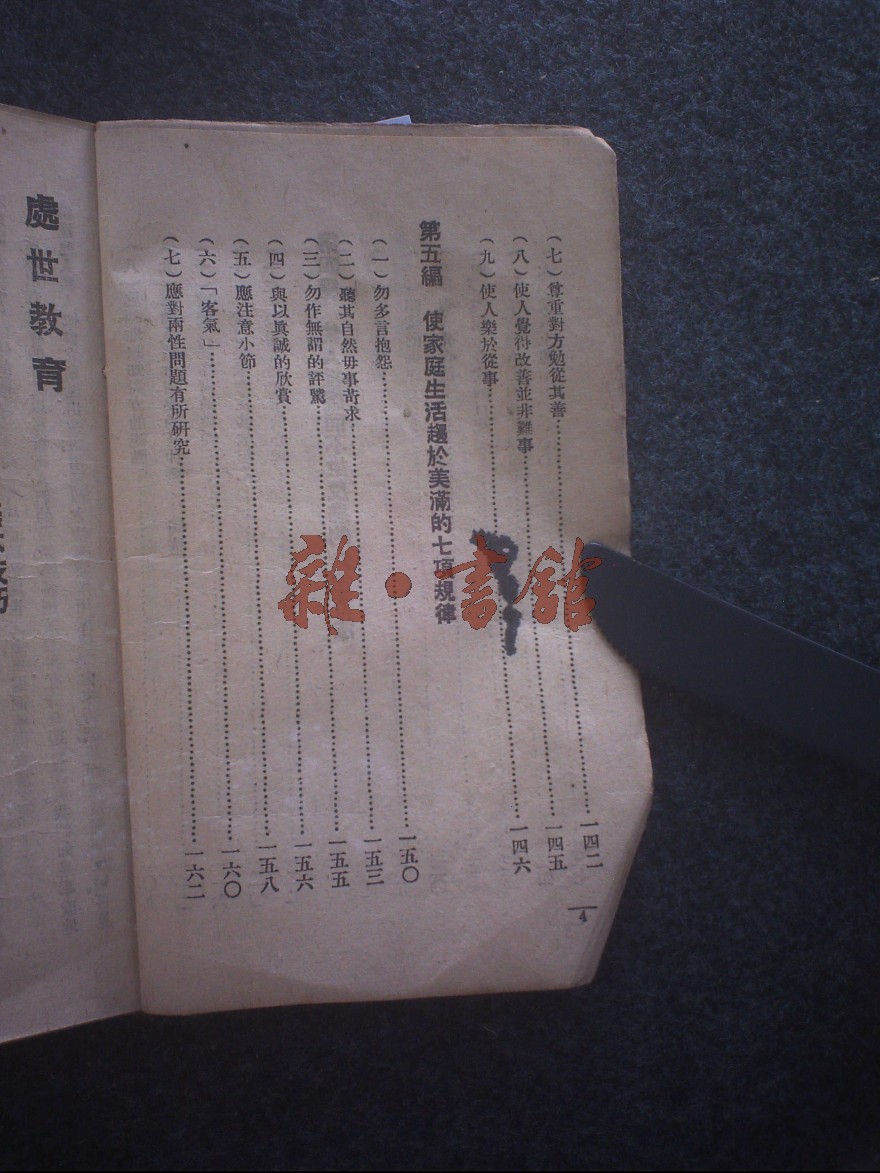 (七)尊重對方勉從其善……一四二
(八)使人覺得改善並非難事……一四五
(九)使人樂於從事……一四六
第五編 使家庭生活趨於美滿的七項規律
(一)勿多言抱怨……一五〇
(二)聽其自然毋事苛求……一五三
(三)勿作無謂的評騭……一五五
(四)與以眞誠的欣賞……一五六
(五)應注意小節……一五八
(六)「客氣」……一六〇
(七)應對兩性問題有所研究……一六二
4
處世教育
技巧
雜·書館